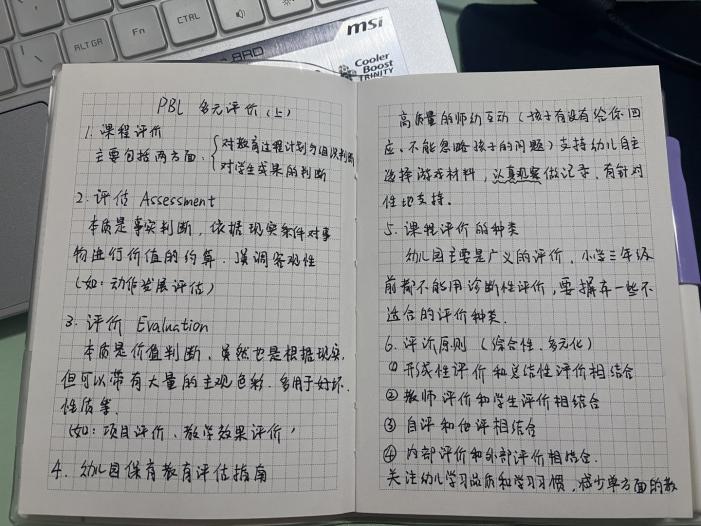 ALT GR
Fn
CTRL
msi
Cooler
Boost
TRINITY
PBL 多元评价(上)
1. 课程评价
主要包括两方面. {对教育过程计划与组织判断
对学生成果的判断
2. 评估 Assessment
本质是事实判断, 依据现实条件对事
物进行价值的约算. 强调客观性
(如: 动作发展评估)
3. 评价 Evaluation
本质是价值判断, 虽然也是根据现实,
但可以带有大量的主观色彩. 多用于好坏.
性质等.
(如: 项目评价、教学效果评价)
4. 幼儿园保育教育评估指南
高质量的师幼互动(孩子有没有给你回
应、不能忽略孩子的问题)支持幼儿自主
选择游戏材料, 认真观察做记录, 有针对
性地支持.
5. 课程评价的种类
幼儿园主要是广义的评价, 小学三年级
前都不能用诊断性评价, 要摒弃一些不
适合的评价种类.
6. 评价原则 (综合性、多元化)
① 形成性评价和总结性评价相结合
② 教师评价和学生评价相结合
③ 自评和他评相结合
④ 内部评价和外部评价相结合.
关注幼儿学习品质和学习习惯, 减少单方面的教